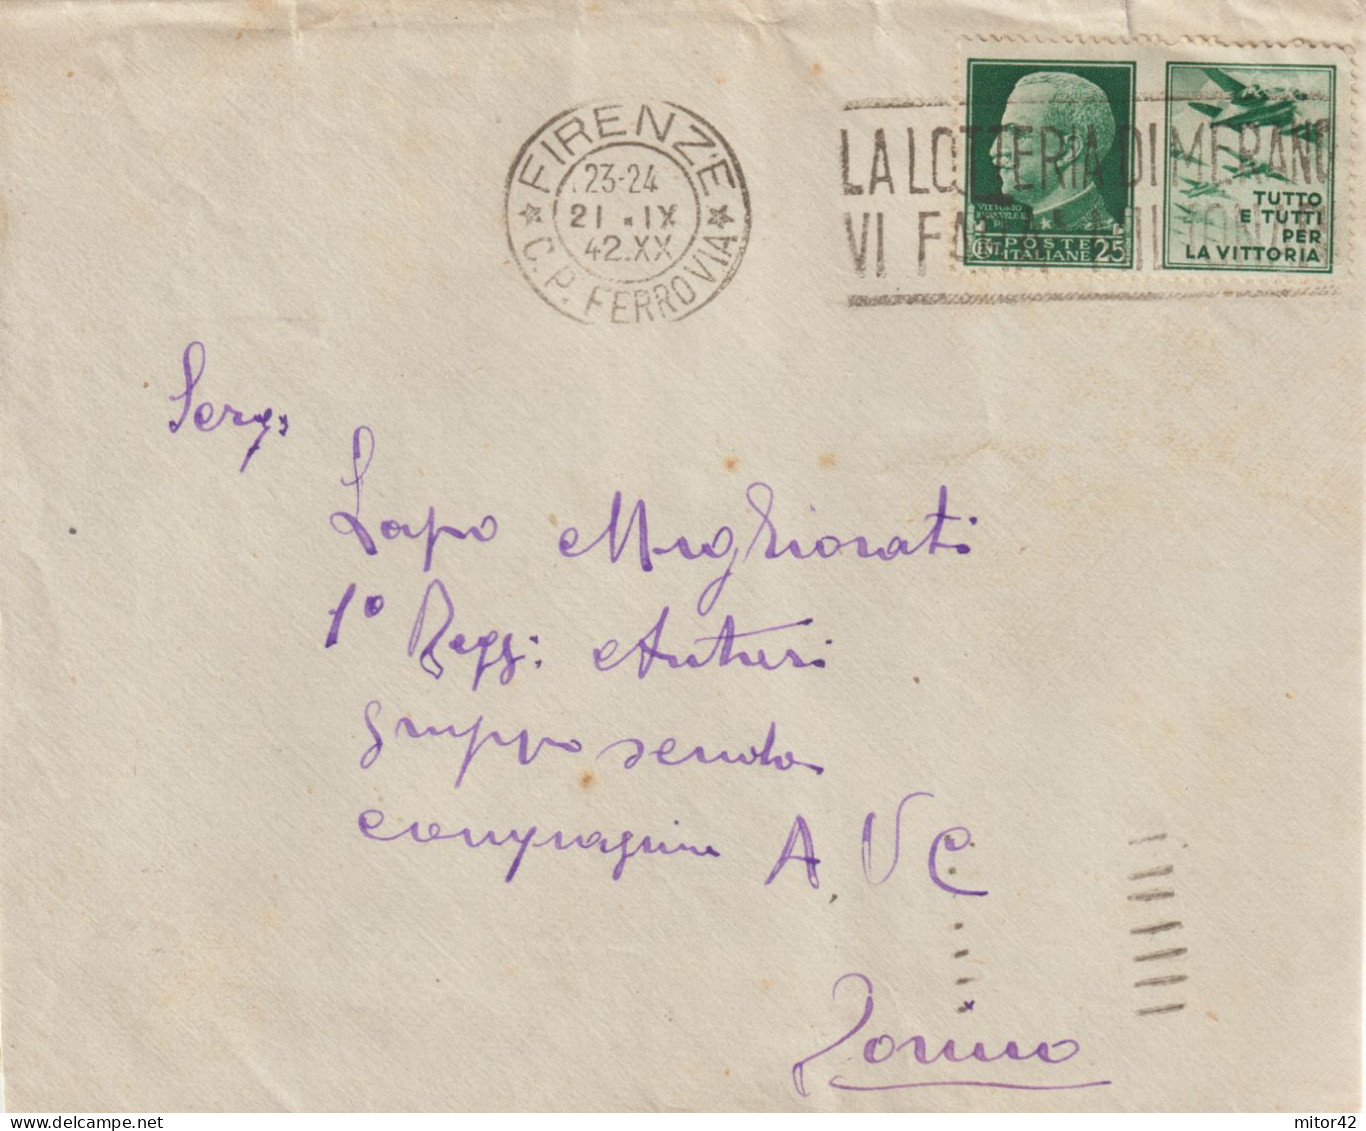 FIRENZE
23-24
21.IX
42.XX
C.P. FERROVIA
LA LOTTERIA DI MERANO
VI FARA' MILIONARI
VITTORIO
EMANUELE III
POSTE
CENT ITALIANE 25
TUTTO
E TUTTI
PER
LA VITTORIA
Serg:
Lapo Migliorati
1º Regg: Autieri
gruppo scuola
compagnia A.U.C
Torino
mitor42